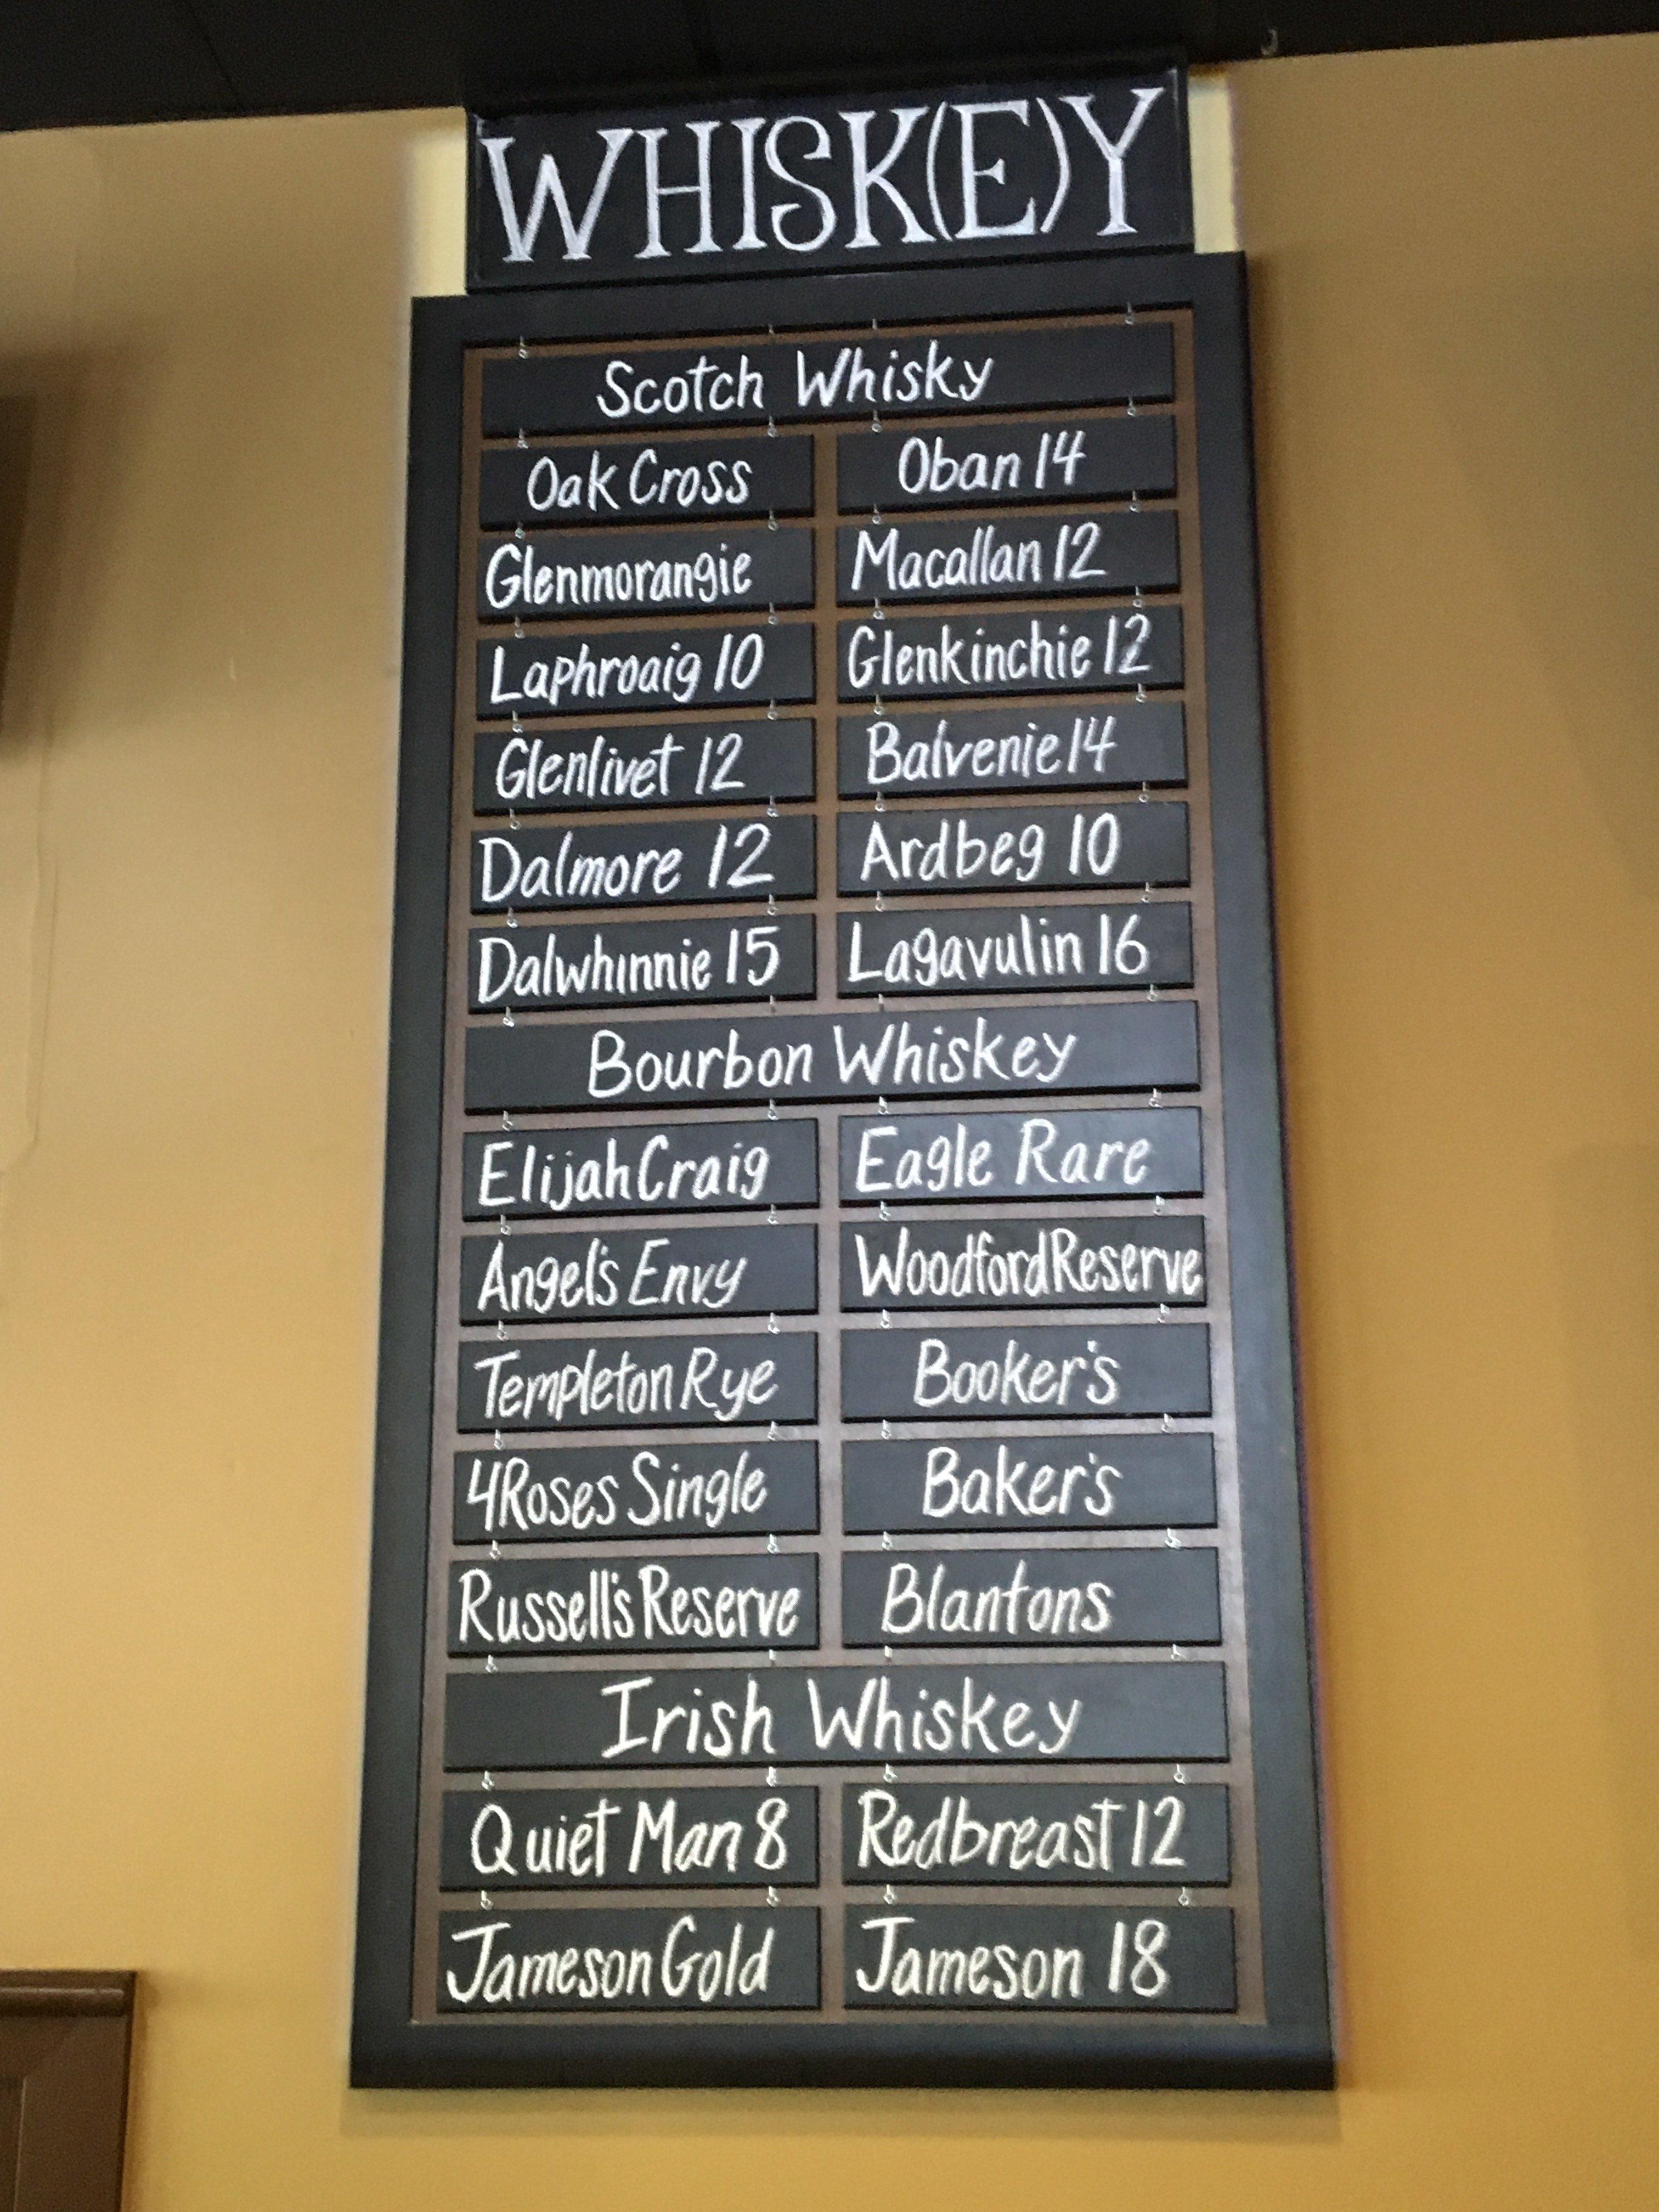 WHISK(E)Y
Scotch Whisky
Oak Cross
Oban 14
Glenmorangie
Macallan 12
Laphroaig 10
Glenkinchie 12
Glenlivet 12
Balvenie 14
Dalmore 12
Ardbeg 10
Dalwhinnie 15
Lagavulin 16
Bourbon Whiskey
Elijah Craig
Eagle Rare
Angel's Envy
Woodford Reserve
Templeton Rye
Booker's
4 Roses Single
Baker's
Russell's Reserve
Blantons
Irish Whiskey
Quiet Man 8
Redbreast 12
Jameson Gold
Jameson 18